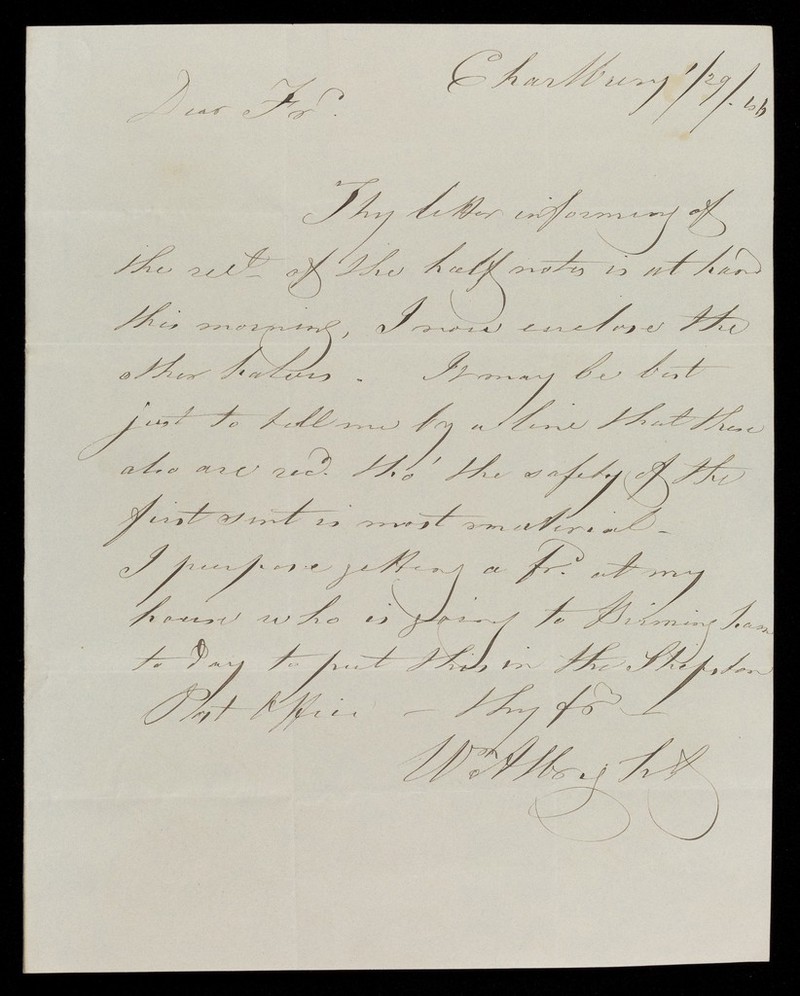 Charlbury 1/29/.
Dear Frd.
Thy letter informing of
the rect. of the half notes is at hand
this morning, I now enclose the
other halves. It may be best
just to tell me by a line that these
also are recd. tho' the safety of the
first sent is most material -
I purpose getting a frd. at my
house who is going to Birmingham
to day to put this in the Shipston
Post Office - thy frd -
Wm Albright